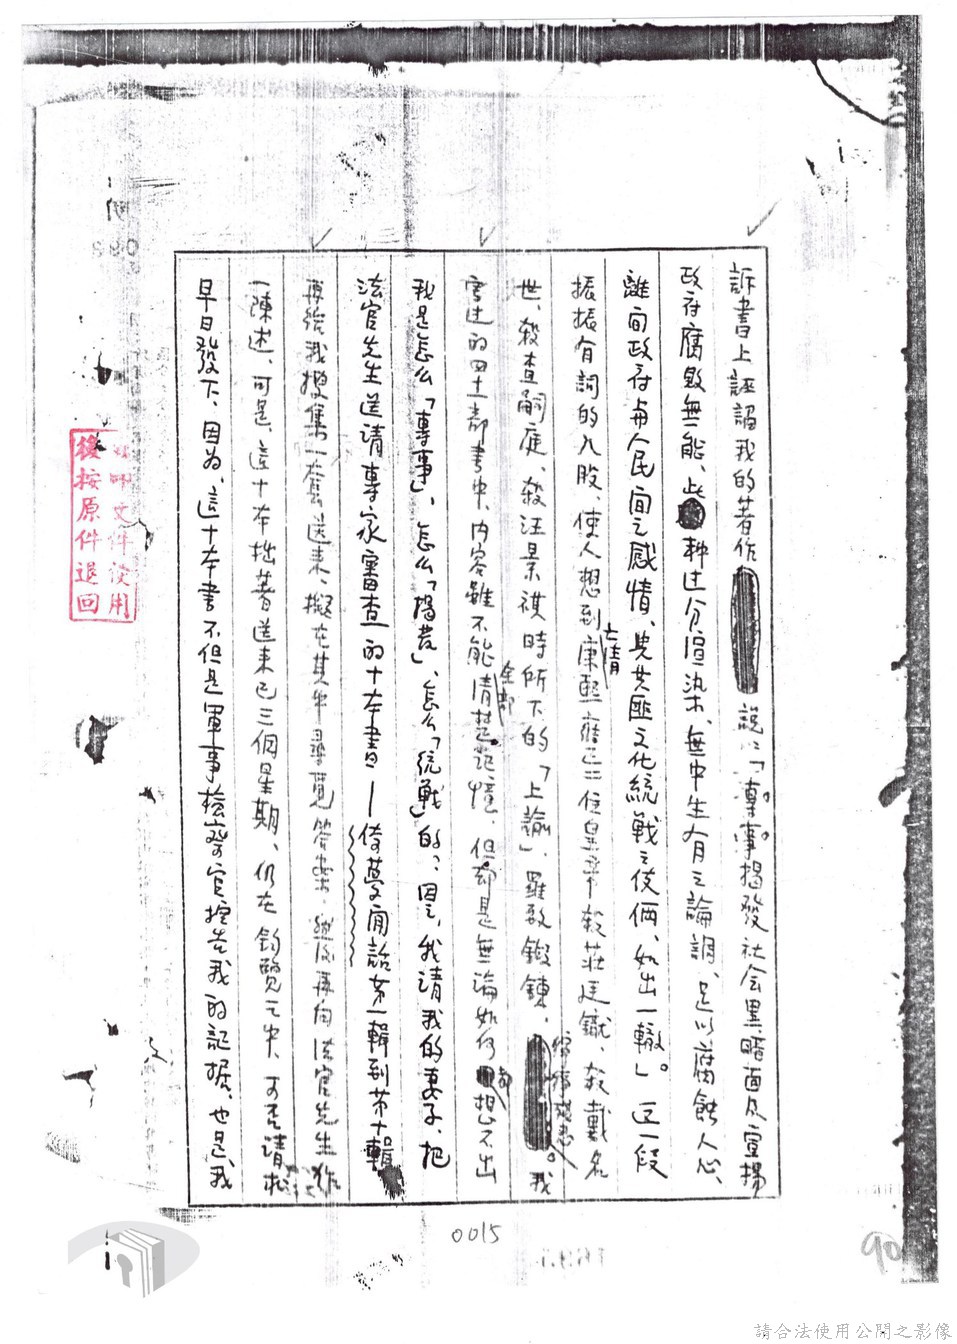 訴書上誣謟我的著作說以「專事揭發社会黑暗面及宣揚
政府腐敗無能、此種过分渲染、無中生有之論調、足以腐蝕人心、
離间政府与人民间之感情、與共匪文化統戰之伎俩、如出一轍」。这一段
振振有詞的八股、使人想到康熙雍正二位皇帝殺莊廷鑨、殺戴名
世、殺查嗣庭、殺汪景祺時所下的「上諭」、羅致鍛鍊、我
寫过的四十部書中、内容雖不能全部清楚記憶、但却是無論如何都想不出
我是怎么「專事」、怎么「揭發」、怎么「統戰」的、因之、我請我的妻子、把
法官先生送請專家審查的十本書—倚夢闲話第一輯到第十輯
再给我搜集一套送来、擬在其中尋覓答案、然後再向法官先生作
一陳述、可是、這十本拙著送来已三個星期、仍在鈞覽之中、可否請於
早日發下、因为、這十本書不但是軍事檢察官控告我的証據、也是我
後按原件退回
文件使用
0015
90
請合法使用公開之影像